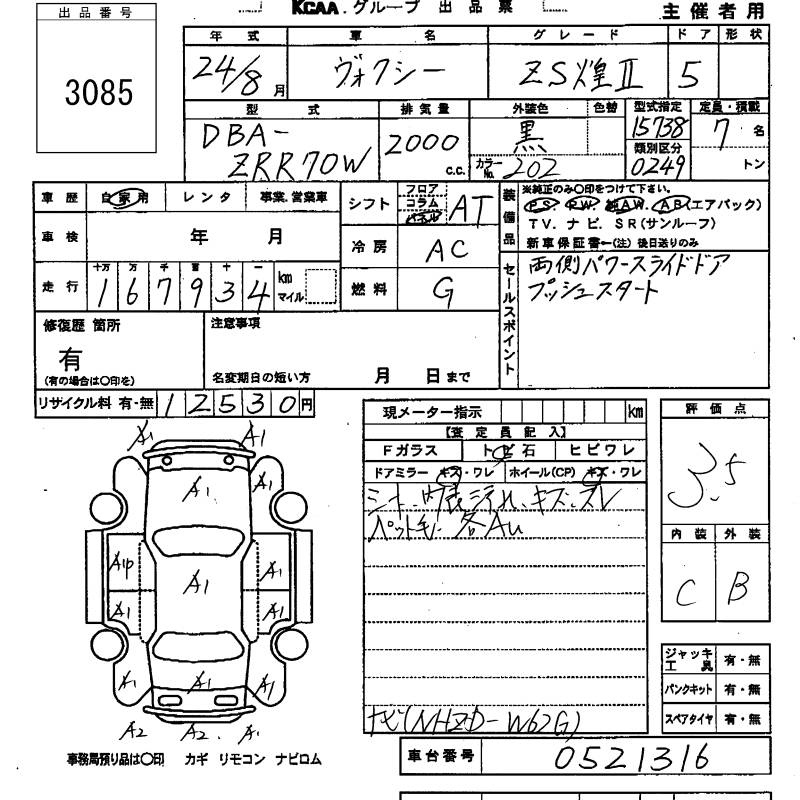 出品番号
3085
KCAA.グループ 出品票
主催者用
年式 車名 グレード ドア 形状
24/8月 ヴォクシー ZS煌Ⅱ 5
型式 排気量 外装色 色替 型式指定 定員・積載
DBA-
ZRR70W
2000 c.c.
黒
カラーNo. 202
15738
類別区分
0249
7名
トン
車歴 自家用 レンタ 事業.営業車
シフト フロア コラム パネル AT
装備品
※純正のみ〇印をつけて下さい。
PS. PW. 純AW. AB(エアバック)
TV. ナビ. SR(サンルーフ)
新車保証書←(注) 後日送りのみ
車検 年 月
冷房 AC
走行 十万 万 千 百 十 一
167934 km マイル
燃料 G
セールスポイント
両側パワースライドドア
プッシュスタート
修復歴 箇所
有
(有の場合は〇印を)
注意事項
名変期日の短い方 月 日まで
リサイクル料 有・無 12530円
現メーター指示 km
【査定員記入】
Fガラス トビ石 ヒビワレ
ドアミラー キズ・ワレ ホイール(CP) キズ・ワレ
シート、内装汚れ、キズ、スレ
ペット毛、各AU
ナビ(NHZD-W62G)
評価点
3.5
内装 外装
C B
ジャッキ工具 有・無
パンクキット 有・無
スペアタイヤ 有・無
A1 A1
A1
A1P A1 A1
A1 A1
A1 A1 A1
A2 A2. A1
事務局預り品は〇印 カギ リモコン ナビロム
車台番号 0521316